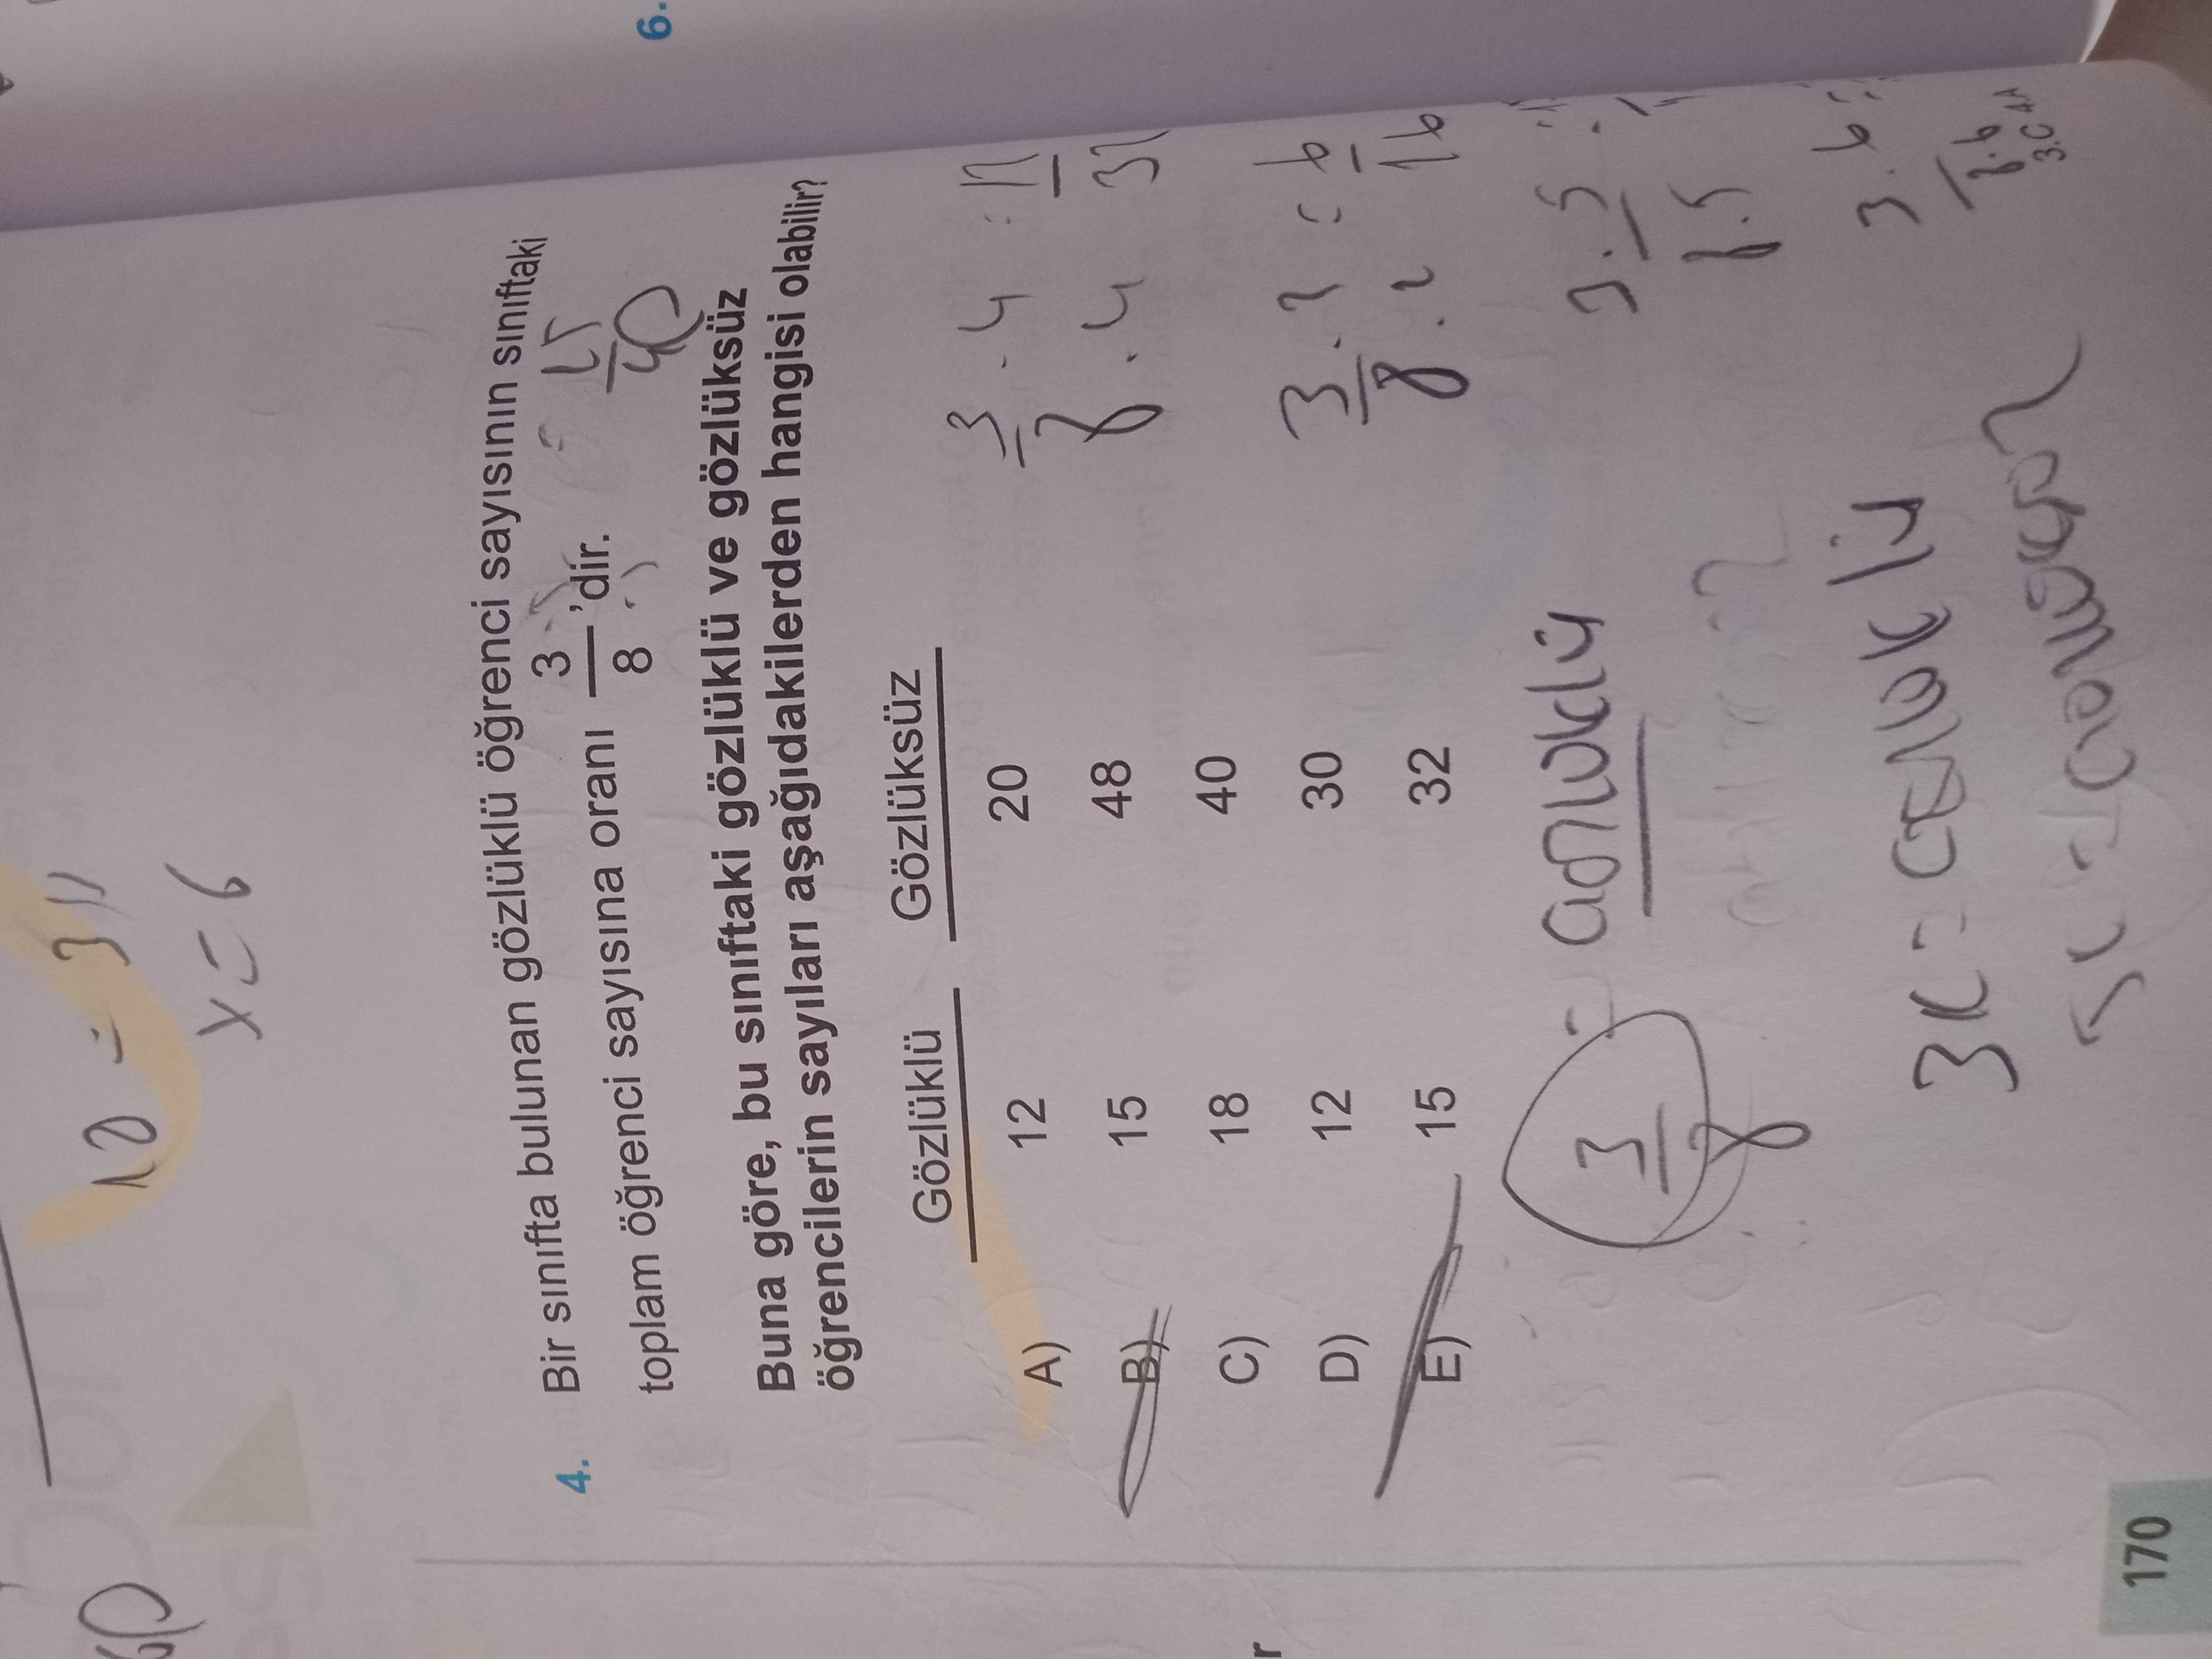 6.
10 = 3
x = 6
4. Bir sınıfta bulunan gözlüklü öğrenci sayısının sınıftaki
toplam öğrenci sayısına oranı 3/8 'dir.
15/40
Buna göre, bu sınıftaki gözlüklü ve gözlüksüz
öğrencilerin sayıları aşağıdakilerden hangisi olabilir?
Gözlüklü Gözlüksüz
A) 12 20
B) 15 48
C) 18 40
D) 12 30
E) 15 32
3/8 . 4/4 : 12/32
3/8 . 2/2 = 6/16
3.5/8.5
3.6
8.6
3/8 = gözlüklü
3k = gözlüklü
5k = gözlüksüz
3.C 4.A
170
r